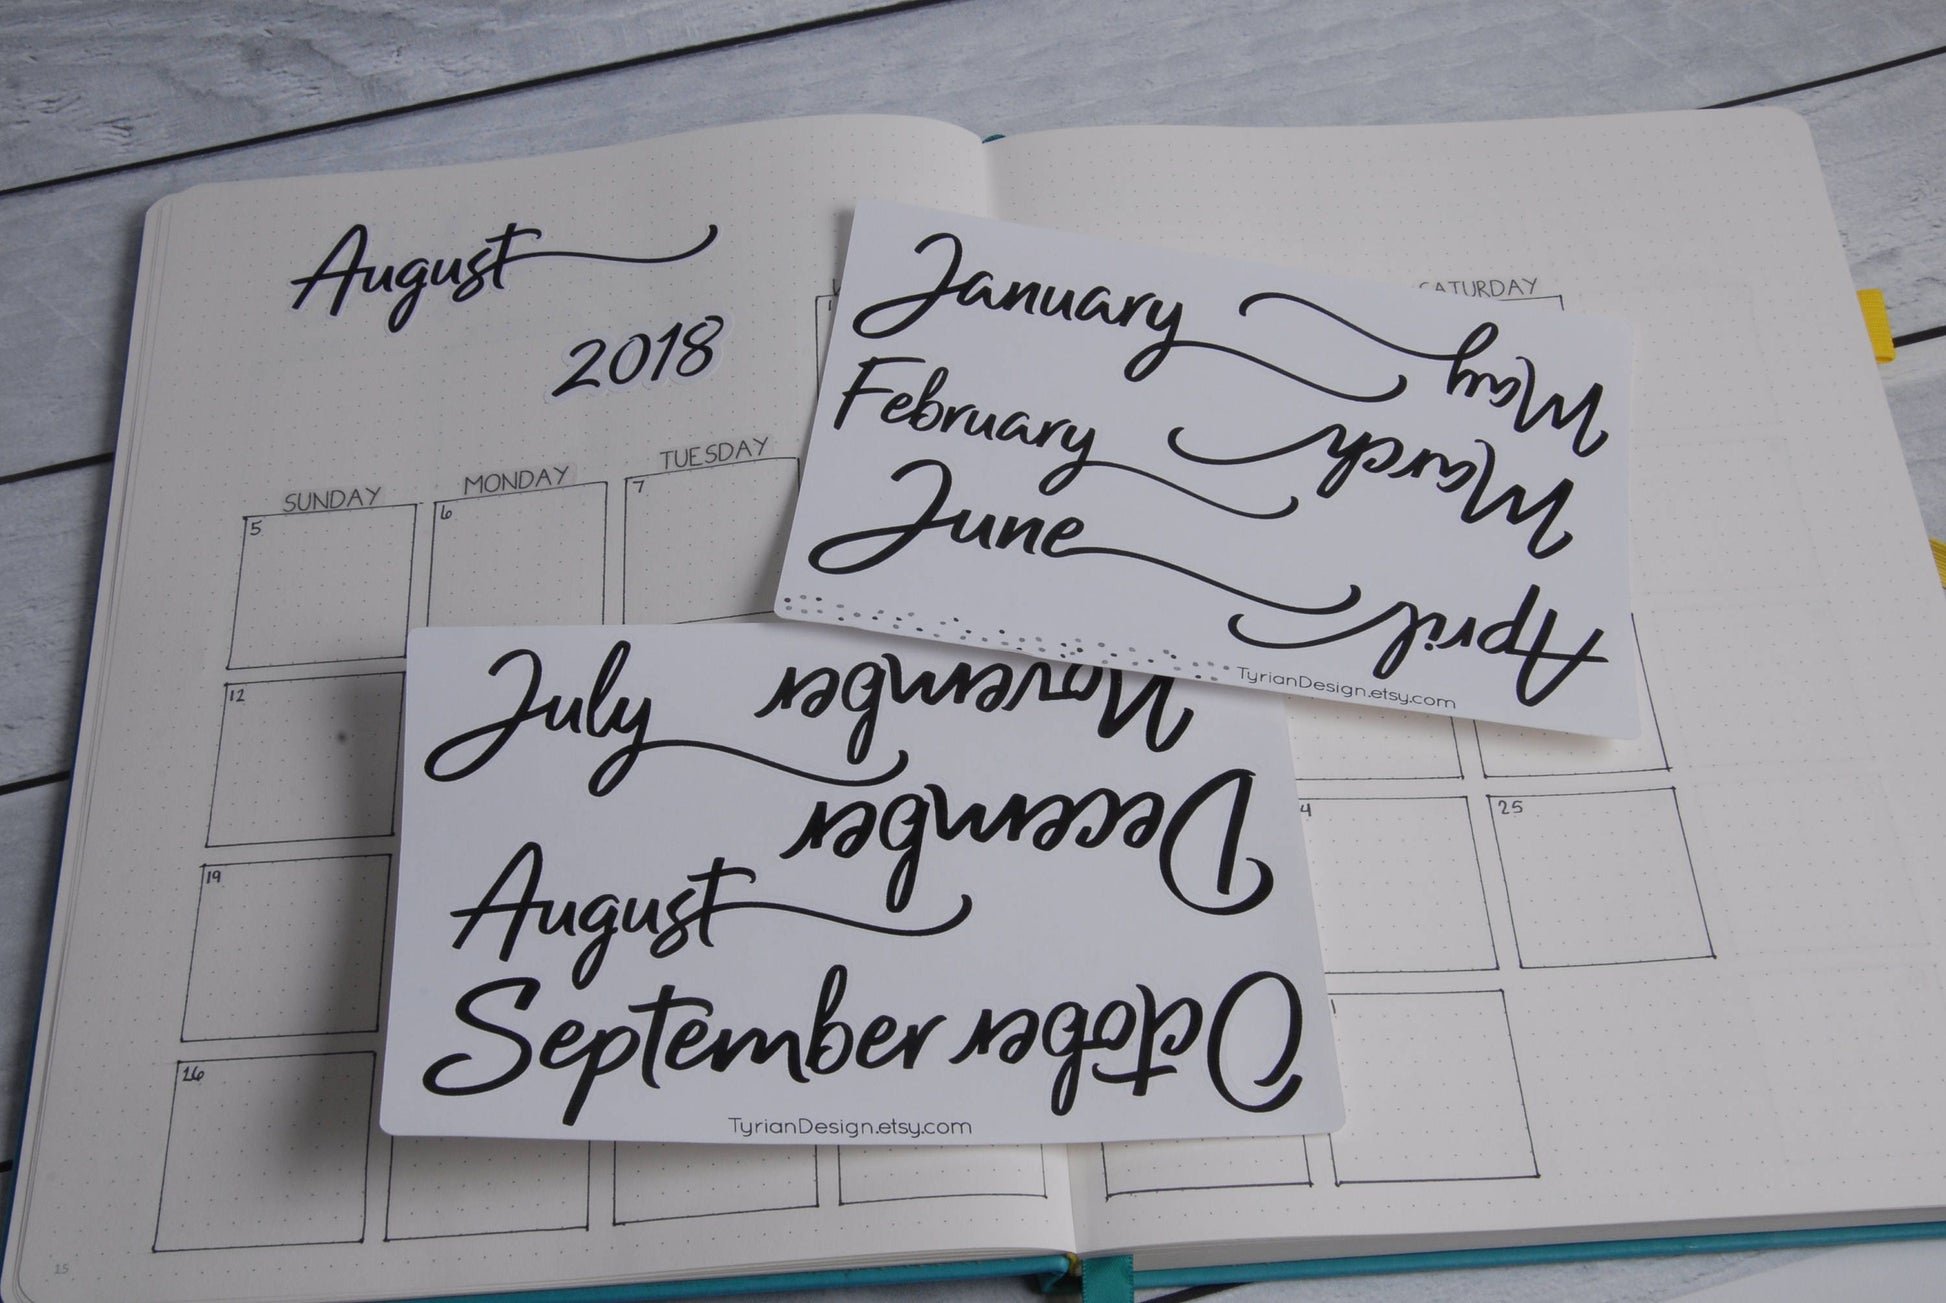 August
2018
SUNDAY MONDAY TUESDAY SATURDAY
5 6 7
12
19
25
26
15
January
February
June
May
March
April
TyrianDesign.etsy.com
July
August
September
November
December
October
TyrianDesign.etsy.com